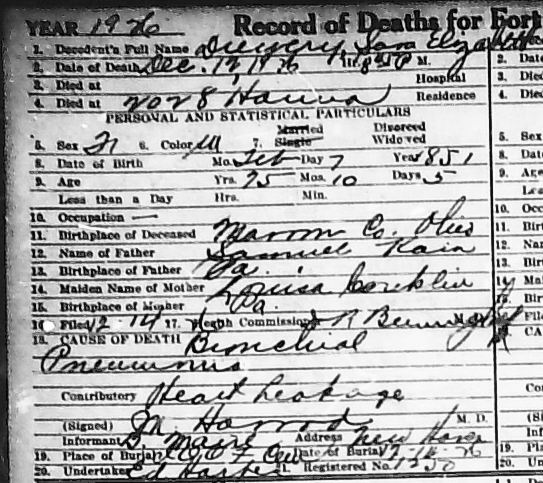 YEAR 1926 Record of Deaths for Fort
1. Decedent's Full Name Drewery Sara Elizabeth
2. Date of Death Dec. 12, 1926 Hr. 8:50 P M.
3. Died at Hospital
4. Died at 2028 Hanna Residence
PERSONAL AND STATISTICAL PARTICULARS
Married Divorced
5. Sex F 6. Color W 7. Single Widowed
8. Date of Birth Mo. Feb Day 7 Year 1851
9. Age Yrs. 75 Mos. 10 Days 5
Less than a Day Hrs. Min.
10. Occupation —
11. Birthplace of Deceased Marion Co. Ohio
12. Name of Father Samuel Rain
13. Birthplace of Father Pa.
14. Maiden Name of Mother Louisa Conklin
15. Birthplace of Mother Pa.
16. Filed 12 14 17. Health Commissioner
18. CAUSE OF DEATH Bronchial
Pneumonia
Contributory Heart Leakage
(Signed) Harrod M. D.
Informant Address New Haven
19. Place of Burial I O O F Cem Date of Burial
20. Undertaker Ed Harper 21. Registered No.
2. Date
3. Died
4. Died
5. Sex
8. Date
9. Age
10. Occ
11. Birt
12. Nar
13. Birt
14. Mai
15. Birt
16. File
18. CA
Co
(Si
Inf
19. Pla
20. Und